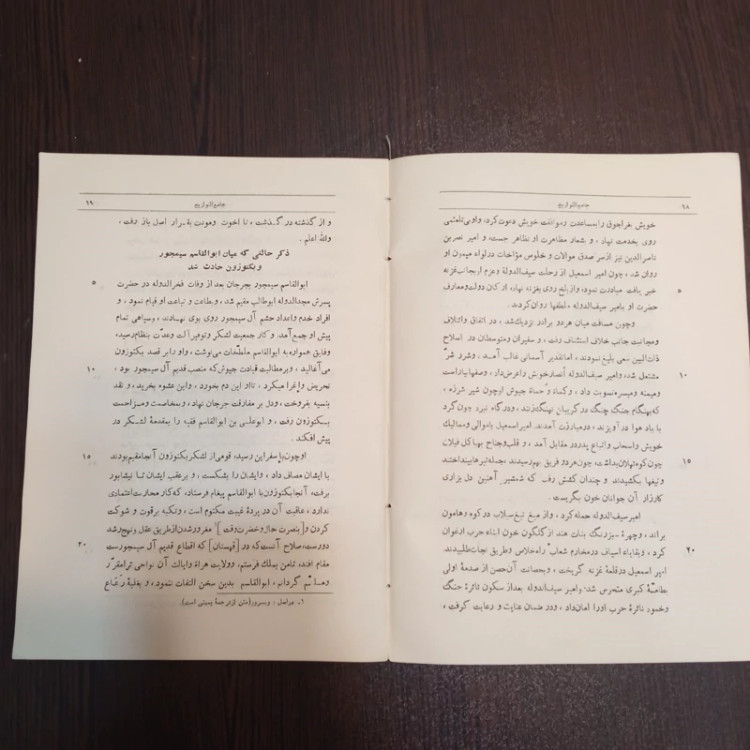 ۶۸ جامع‌التواریخ
خویش بغراجوق را بمساعدت و موافقت خویش دعوت کرد، واو بی‌تلعثمی
روی بخدمت نهاد، و شعار مظاهرت او نظاهر جسته و امیر نصربن
ناصرالدین نیز از سر صدق موالات و خلوص مؤاخات در لواء میمون او
روان شد، چون امیر اسمعیل از رحلت سیف‌الدوله و عزم او بجانب غزنه
۵ خبر یافت مبادرت نمود، و از بلخ روی بغزنه نهاد، از کنان دولت و معارف
حضرت او با میر سیف‌الدوله، لطفها روان کردند.
وچون مسافت میان هر دو برادر نزدیک شد، در اتفاق وائتلاف
ومجانبت جانب خلاف استئناف رفت، و سفیران ومتوسطان در اصلاح
ذات‌البین سعی بلیغ نمودند، اما تقدیر آسمانی غالب آمد، و شرر شرّ
۱۰ مشتعل شد، وامیر سیف‌الدوله و میمنه و میسره تسویت داد، و کماة و حماة جیوش او چون شیر شرزه،
که بهنگام جنگ چنگ در گریبان نهنگ زنند، و در گاه نبرد چون گرد
با باد هوا در آویزند، در مبارزت آمدند. امیر اسمعیل با موالی و ممالیک
خویش و اصحاب و اتباع پدر در مقابل آمد، و قلب و جناح بهیاکل فیلان
۱۵ چون کوه ثهلان بداشت، چون هر دو فریق بهم رسیدند جمله تیرها بینداختند
و تیغها بکشیدند و چندان کشش رفت که شمشیر آهنین دل بزاری
کارزار آن جوانان خون بگریست.
امیر سیف‌الدوله حمله کرد، و از میغ تیغ سیلاب در کوه و هامون
براند، و چهرهٔ سبز رنگ بنات هند از گلگون خون ابناء حرب ارغوان
۲۰ کرد، و بقایاء اسیاف در مخارم شعاب راه خلاص و طریق نجات طلبیدند.
امیر اسمعیل در قلعهٔ غزنه گریخت، و بحصانت آن حصن از صدمهٔ اولی
طامّهٔ کبری متحرس شد، و امیر سیف‌الدوله بعد از سکون نائرهٔ جنگ
و خمود نائرهٔ حرب او را امان داد، و در ضمان عنایت و رعایت گرفت،
جامع‌التواریخ ۶۹
و از گذشته در گذشت، تا اخوت و مودت بقرار اصل باز رفت،
والله اعلم.
ذکر حالتی که میان ابوالقاسم سیمجور
و بکتوزون حادث شد
۵ ابوالقاسم سیمجور بجرجان بعد از وفات فخرالدوله در حضرت
پسرش مجدالدوله ابوطالب مقیم شد، و بطاعت و تباعت او قیام نمود، و
افراد خدم واعداد حشم آل سیمجور روی بوی نهادند، و سپاهی تمام
پیش او جمع آمد. و کار جمعیت لشکر و توفیر آلات و عدّت بنظام رسید،
وفایق همواره به ابوالقاسم ملطّفات می‌نوشت، و او را بر قصد بکتوزون
۱۰ می‌آغالید، و بر مطالبت قیادت جیوش که منصب قدیم آل سیمجور بود،
تحریض و اغرا میکرد، تا او این دم بخورد، و این عشوه بخرید، و نقد
بنسیه بفروخت، و دل بر مفارقت جرجان نهاد، و بمخاصمت و مزاحمت
بکتوزون رفت، و ابوعلی بن ابوالقاسم فقیه را بمقدمهٔ لشکر در
پیش افکند.
۱۵ او چون باسفراین رسید، قومی از لشکر بکتوزون آنجا مقیم بودند
با ایشان مصاف داد، و ایشان را بشکست، و بر عقب ایشان تا نیشابور
برفت، آنجا بکتوزون با ابوالقاسم پیغام فرستاد، که کار محاربت اعتمادی
ندارد، عاقبت آن در پردهٔ غیبت مکتوم است، و تکیه بر قوت و شوکت
کردن و [بنصرت حال و حضرت وقت]۱ مغرور شدن از طریق عقل و نهج رشد
۲۰ دورست، صلاح آنست که در [قهستان] که اقطاع قدیم آل سیمجورست
مقام افتد، تا من بملک فرستم، و ولایت هراة وایالت آن نواحی ترا مقرّر
و مسلّم گردانم، ابوالقاسم بدین سخن التفات ننمود، و بغلبهٔ رَعاع
۱- در اصل: و بسرور (متن از ترجمهٔ یمینی است).